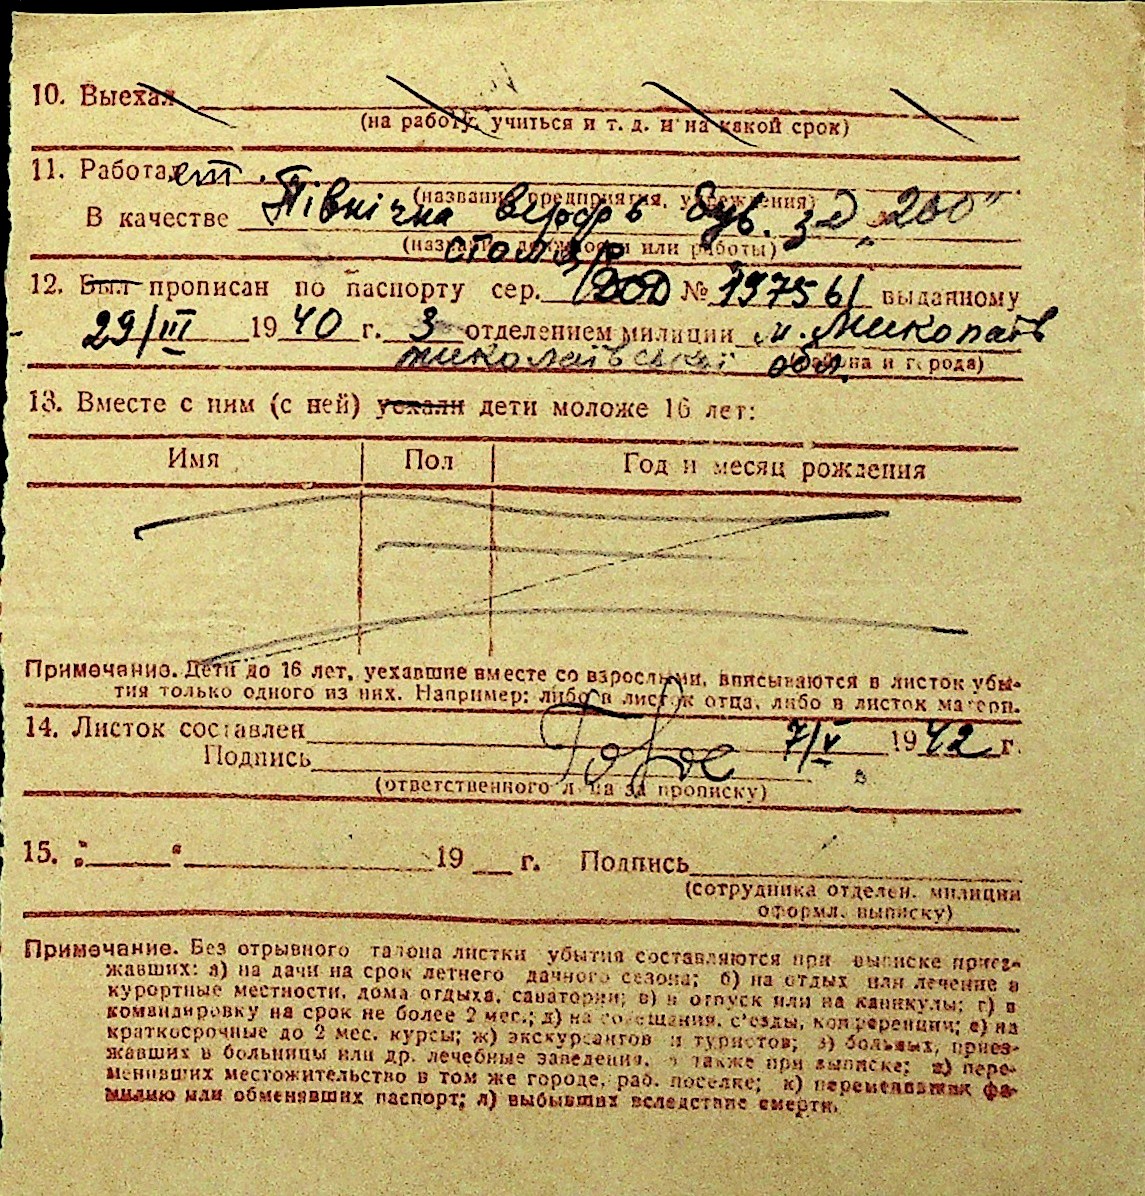 10. Выехал
(на работу, учиться и т. д. и на какой срок)
11. Работает
(название предприятия, учреждения)
Північна верфь буд. з-д „200"
В качестве
(название должности или работы)
столяр
12. Был прописан по паспорту сер. № 197561 выданному
29/III 1940 г. 3 отделением милиции м. Миколаїв
миколаївської обл.
(района и города)
13. Вместе с ним (с ней) уехали дети моложе 16 лет:
Имя Пол Год и месяц рождения
Примечание. Дети до 16 лет, уехавшие вместе со взрослыми, вписываются в листок убы-
тия только одного из них. Например: либо в листок отца, либо в листок матери.
14. Листок составлен 7/V 1942 г.
Подпись
(ответственного лица за прописку)
15. „ " 19 г. Подпись
(сотрудника отделен. милиции
оформл. выписку)
Примечание. Без отрывного талона листки убытия составляются при выписке приез-
жавших: а) на дачи на срок летнего дачного сезона; б) на отдых или лечение в
курортные местности, дома отдыха, санатории; в) в отпуск или на каникулы; г) в
командировку на срок не более 2 мес.; д) на совещания, с'езды, конференции; е) на
краткосрочные до 2 мес. курсы; ж) экскурсантов и туристов; з) больных, приез-
жавших в больницы или др. лечебные заведения, а также при выписке; и) пере-
менивших местожительство в том же городе, раб. поселке; к) переменивших фа-
милию или обменявших паспорт; л) выбывших вследствие смерти.